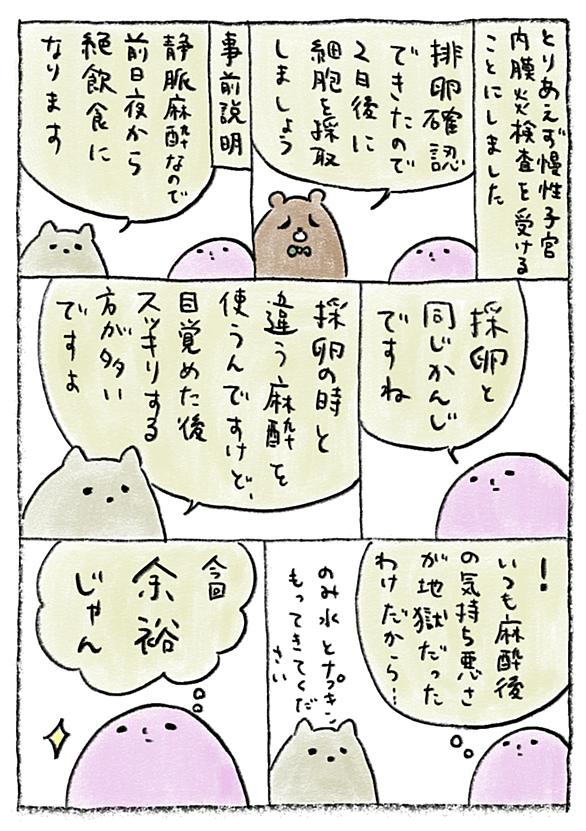 とりあえず慢性子宮
内膜炎検査を受ける
ことにしました
排卵確認
できたので
2日後に
細胞を採取
しましょう
事前説明
静脈麻酔なので
前日夜から
絶飲食に
なります
採卵と
同じかんじ
ですね
採卵の時と
違う麻酔を
使うんですけど、
目覚めた後
スッキリする
方が多い
ですよ
!
いつも麻酔後
の気持ち悪さ
が地獄だった
わけだから…
のみ水とナプキン
もってきてくだ
さい
今回
余裕
じゃん